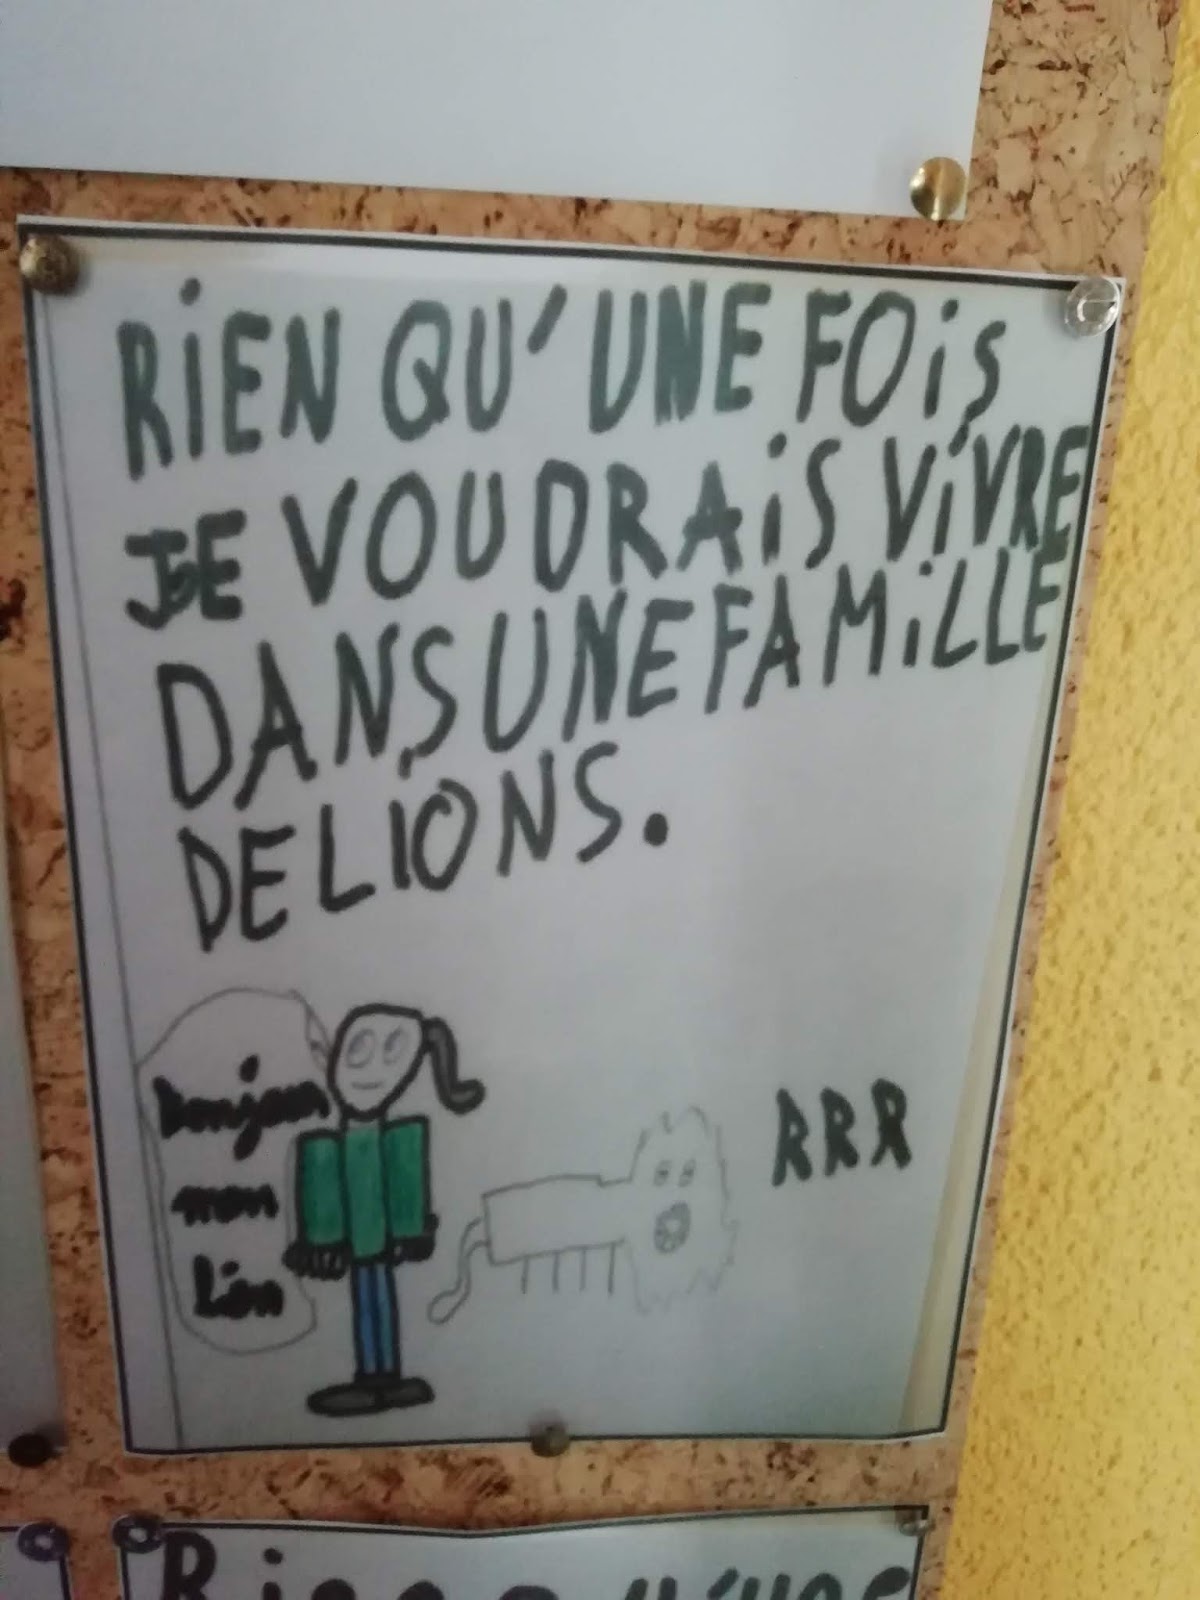 RiEN QU'UNE FOiS
JE VOUDRAiS ViVRE
DANS UNE FAMiLLE
DE LiONS.
bonjour
mon
Lion
RRR